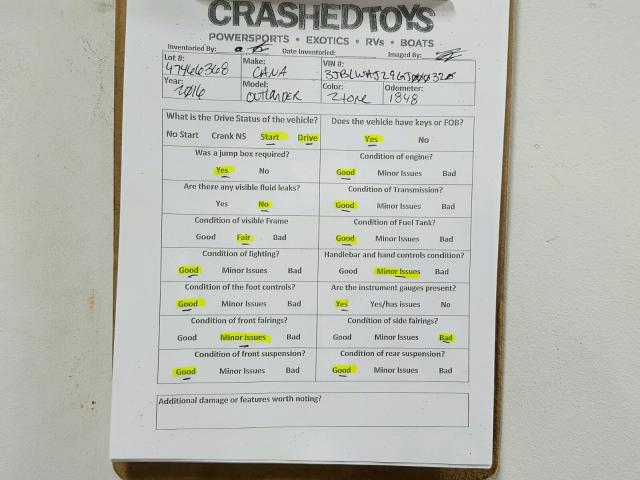 CRASHEDTOYS
POWERSPORTS • EXOTICS • RVs • BOATS
Inventoried By: Date Inventoried: Imaged By:
Lot #: 47466368 Make: CANA VIN #:
Year: 2016 Model: OUTLANDER Color: 2tone Odometer: 1848
What is the Drive Status of the vehicle? Does the vehicle have keys or FOB?
No Start Crank NS Start Drive Yes No
Was a jump box required? Condition of engine?
Yes No Good Minor Issues Bad
Are there any visible fluid leaks? Condition of Transmission?
Yes No Good Minor Issues Bad
Condition of visible Frame Condition of Fuel Tank?
Good Fair Bad Good Minor Issues Bad
Condition of lighting? Handlebar and hand controls condition?
Good Minor Issues Bad Good Minor Issues Bad
Condition of the foot controls? Are the instrument gauges present?
Good Minor Issues Bad Yes Yes/has issues No
Condition of front fairings? Condition of side fairings?
Good Minor Issues Bad Good Minor Issues Bad
Condition of front suspension? Condition of rear suspension?
Good Minor Issues Bad Good Minor Issues Bad
Additional damage or features worth noting?